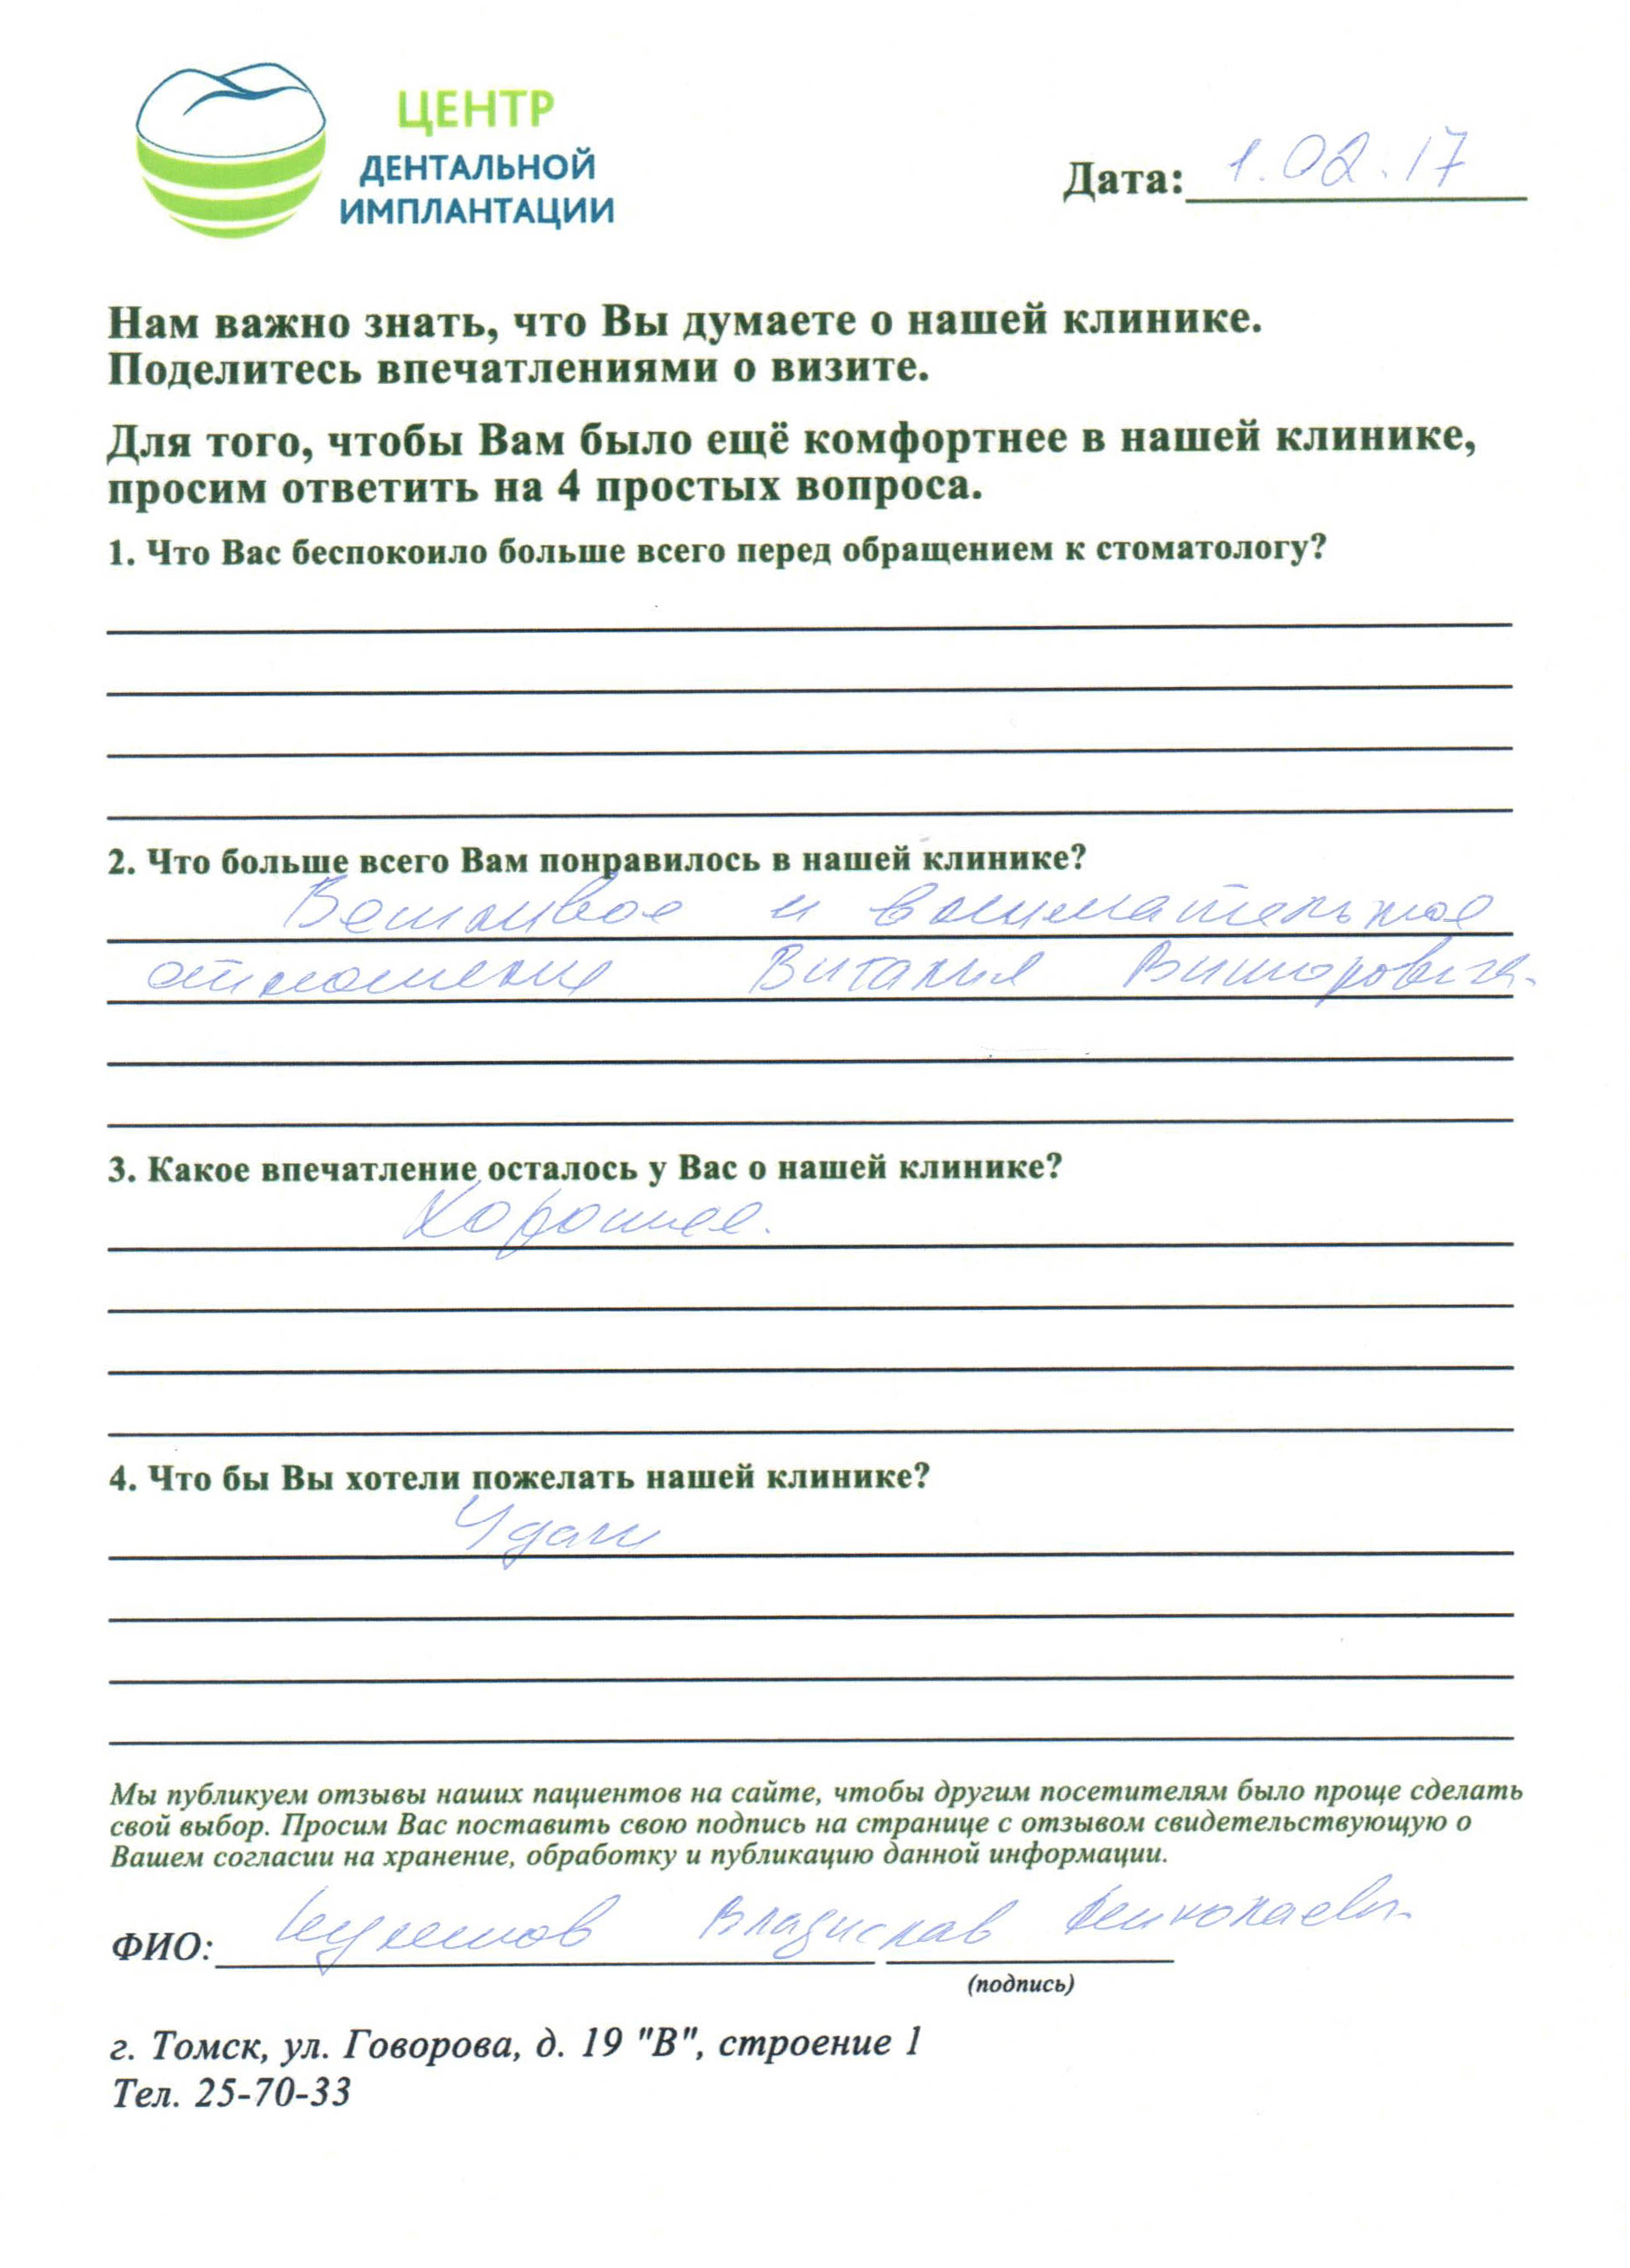 ЦЕНТР
ДЕНТАЛЬНОЙ
ИМПЛАНТАЦИИ
Дата: 1.02.17
Нам важно знать, что Вы думаете о нашей клинике.
Поделитесь впечатлениями о визите.
Для того, чтобы Вам было ещё комфортнее в нашей клинике,
просим ответить на 4 простых вопроса.
1. Что Вас беспокоило больше всего перед обращением к стоматологу?
2. Что больше всего Вам понравилось в нашей клинике?
Вежливое и внимательное
отношение Виталия Викторовича.
3. Какое впечатление осталось у Вас о нашей клинике?
Хорошее.
4. Что бы Вы хотели пожелать нашей клинике?
Удачи
Мы публикуем отзывы наших пациентов на сайте, чтобы другим посетителям было проще сделать
свой выбор. Просим Вас поставить свою подпись на странице с отзывом свидетельствующую о
Вашем согласии на хранение, обработку и публикацию данной информации.
ФИО: Владислав
(подпись)
г. Томск, ул. Говорова, д. 19 "В", строение 1
Тел. 25-70-33